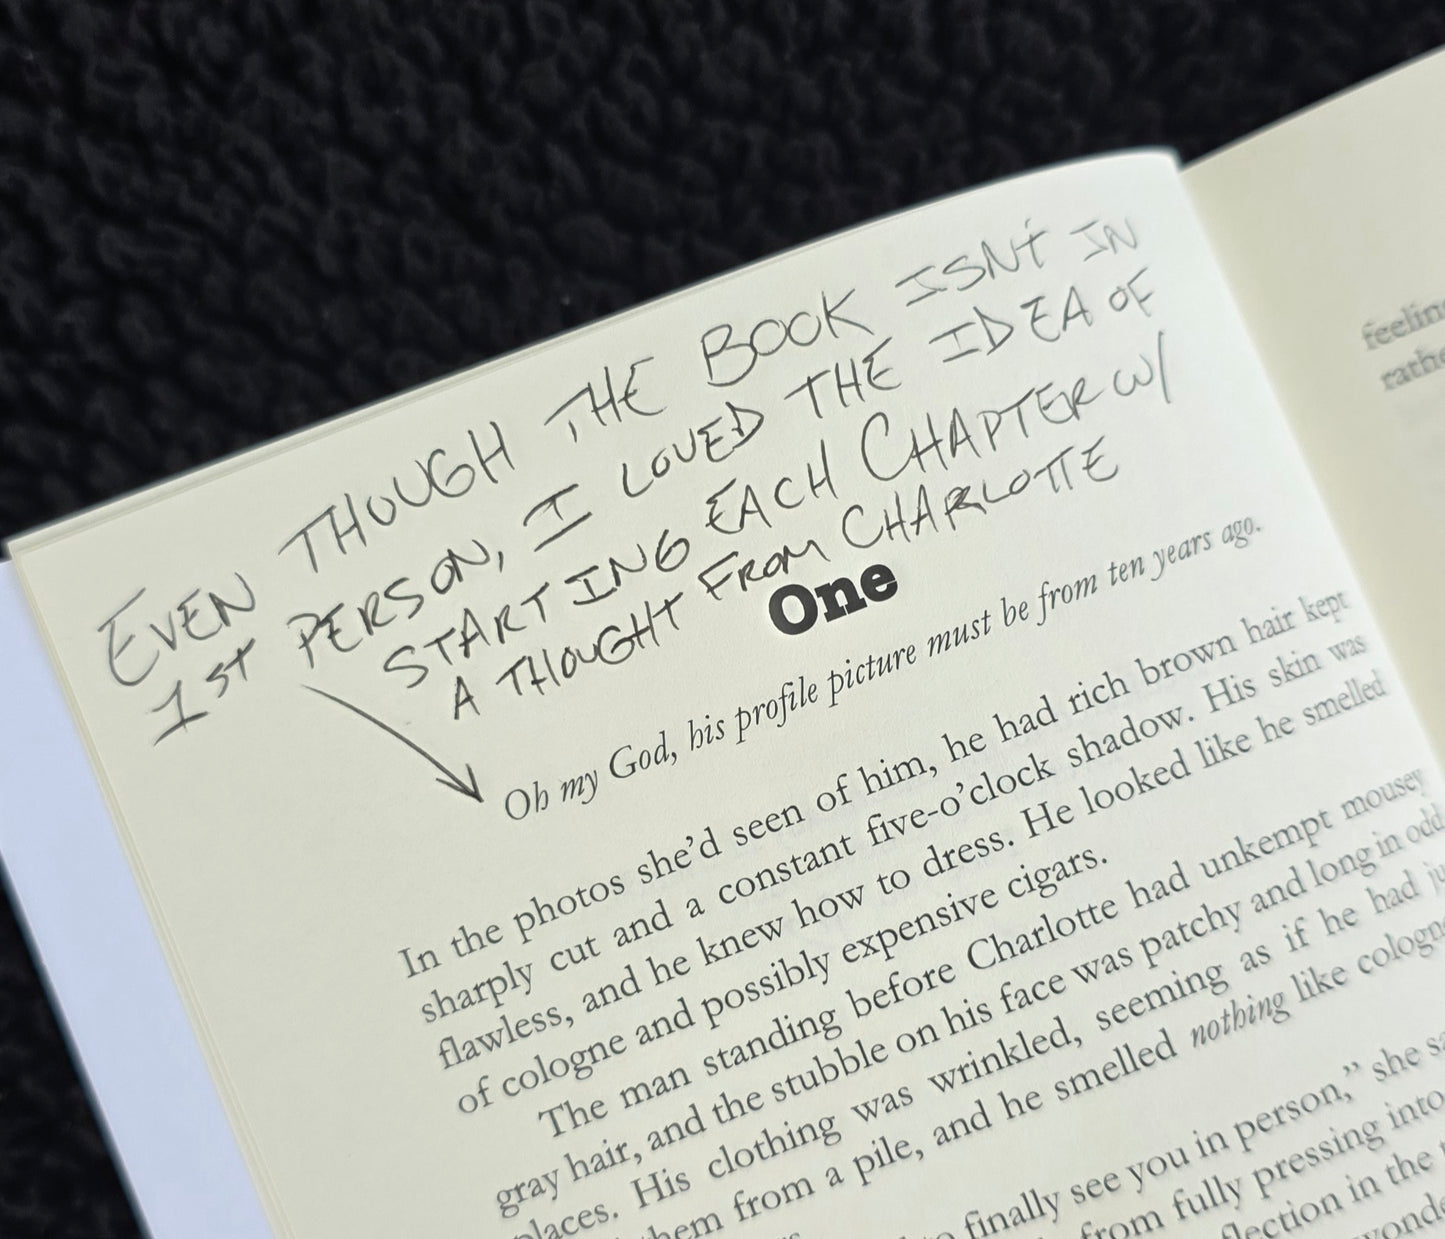 EVEN THOUGH THE BOOK ISN'T IN
1ST PERSON, I LOVED THE IDEA OF
STARTING EACH CHAPTER W/
A THOUGHT FROM CHARLOTTE
One
Oh my God, his profile picture must be from ten years ago.
In the photos she'd seen of him, he had rich brown hair kept
sharply cut and a constant five-o'clock shadow. His skin was
flawless, and he knew how to dress. He looked like he smelled
of cologne and possibly expensive cigars.
The man standing before Charlotte had unkempt mousey
gray hair, and the stubble on his face was patchy and long in odd
places. His clothing was wrinkled, seeming as if he had
them from a pile, and he smelled nothing like cologne
finally see you in person," she
from fully pressing into
in the